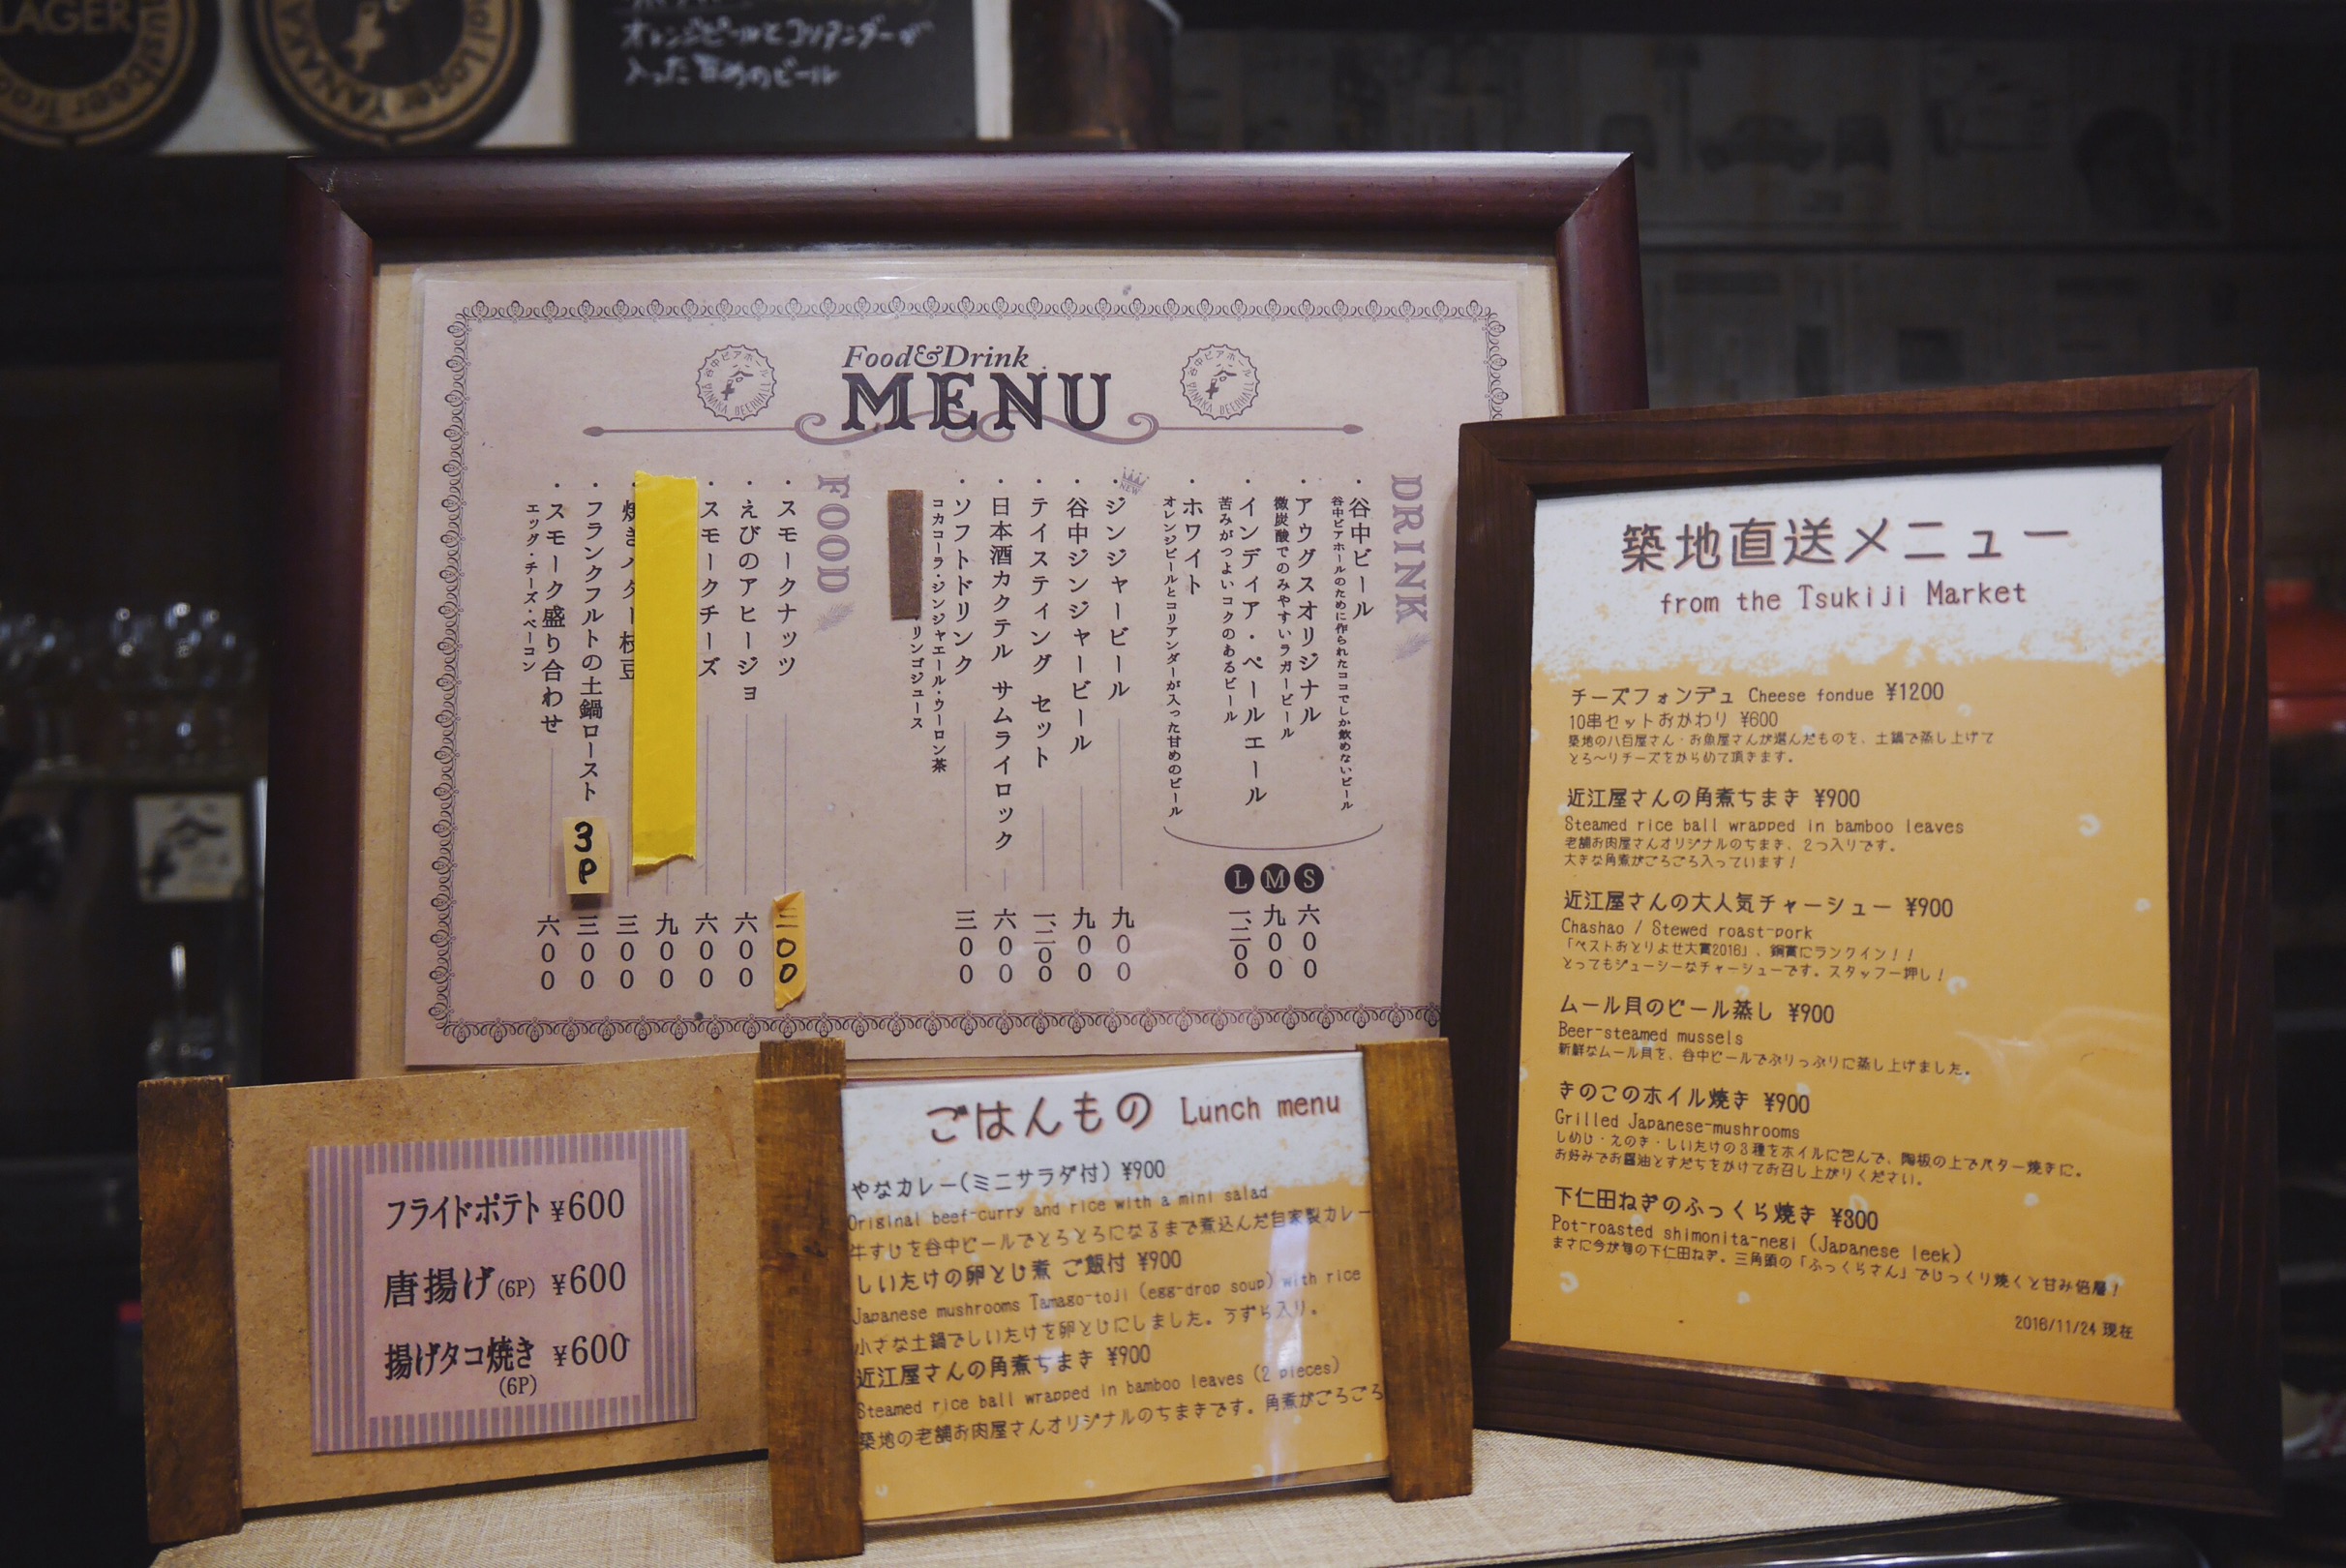 LAGER
YANAKA
オレンジピールとコリアンダーが
入った甘めのビール
Food&Drink
MENU
谷中ビアホール
YANAKA BEERHALL
谷中ビアホール
YANAKA BEERHALL
DRINK
・谷中ビール
谷中ビアホールのために作られたココでしか飲めないビール
・アウグスオリジナル
微炭酸でのみやすいラガービール
・インディア・ペールエール
苦みがつよいコクのあるビール
・ホワイト
オレンジピールとコリアンダーが入った甘めのビール
S 六〇〇
M 九〇〇
L 一、二〇〇
NEW
・ジンジャービール 九〇〇
・谷中ジンジャービール 九〇〇
・テイスティング セット 一、二〇〇
・日本酒カクテル サムライロック 六〇〇
・ソフトドリンク 三〇〇
コカコーラ・ジンジャエール・ウーロン茶
リンゴジュース
FOOD
・スモークナッツ 三00
・えびのアヒージョ 六〇〇
・スモークチーズ 六〇〇
九〇〇
焼きバター枝豆 三〇〇
・フランクフルトの土鍋ロースト 3P 三〇〇
・スモーク盛り合わせ 六〇〇
エッグ・チーズ・ベーコン
築地直送メニュー
from the Tsukiji Market
チーズフォンデュ Cheese fondue ¥1200
10串セットおかわり ¥600
築地の八百屋さん・お魚屋さんが選んだものを、土鍋で蒸し上げて
とろ〜りチーズをからめて頂きます。
近江屋さんの角煮ちまき ¥900
Steamed rice ball wrapped in bamboo leaves
老舗お肉屋さんオリジナルのちまき、2つ入りです。
大きな角煮がごろごろ入っています！
近江屋さんの大人気チャーシュー ¥900
Chashao / Stewed roast-pork
「ベストおとりよせ大賞2016」、銅賞にランクイン！！
とってもジューシーなチャーシューです。スタッフ一押し！
ムール貝のビール蒸し ¥900
Beer-steamed mussels
新鮮なムール貝を、谷中ビールでぷりっぷりに蒸し上げました。
きのこのホイル焼き ¥900
Grilled Japanese-mushrooms
しめじ・えのき・しいたけの3種をホイルに包んで、陶板の上でバター焼きに。
お好みでお醤油とすだちをかけてお召し上がりください。
下仁田ねぎのふっくら焼き ¥300
Pot-roasted shimonita-negi (Japanese leek)
まさに今が旬の下仁田ねぎ。三角頭の「ふっくらさん」でじっくり焼くと甘み倍層！
2016/11/24 現在
フライドポテト ¥600
唐揚げ(6P) ¥600
揚げタコ焼き ¥600
(6P)
ごはんもの Lunch menu
やなカレー(ミニサラダ付) ¥900
Original beef-curry and rice with a mini salad
牛すじを谷中ビールでとろとろになるまで煮込んだ自家製カレー
しいたけの卵とじ煮 ご飯付 ¥900
Japanese mushrooms Tamago-toji (egg-drop soup) with rice
小さな土鍋でしいたけを卵とじにしました。うずら入り。
近江屋さんの角煮ちまき ¥900
Steamed rice ball wrapped in bamboo leaves (2 pieces)
築地の老舗お肉屋さんオリジナルのちまきです。角煮がごろごろ